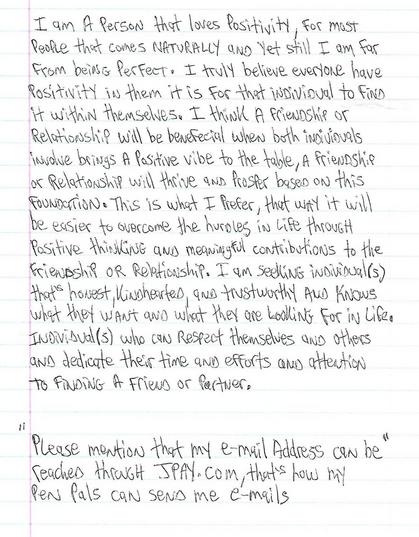 I am A Person that loves Positivity, For most
People that comes NATURALLY AND Yet still I am Far
From being Perfect. I truly believe everyone have
Positivity in them it is For that individual to Find
it within themselves. I think A Friendship or
Relationship will be benefecial when both individuals
involve brings A Positive vibe to the table, A Friendship
or Relationship will thrive and Prosper based on this
Foundation. This is what I Prefer, that way it will
be easier to overcome the hurdles in Life through
Positive thinking and meaningful contributions to the
Friendship OR Relationship. I am seeking individual(s)
that's honest, Kindhearted, and trustworthy AND KNOWS
what they WANT and what they are Looking For in Life.
Individual(s) who can Respect themselves and others
AND dedicate their time and efforts and attention
to Finding A Friend or Partner.
" Please mention that my e-mail Address can be "
reached through JPAY.COM, that's how my
Pen Pals can send me e-mails